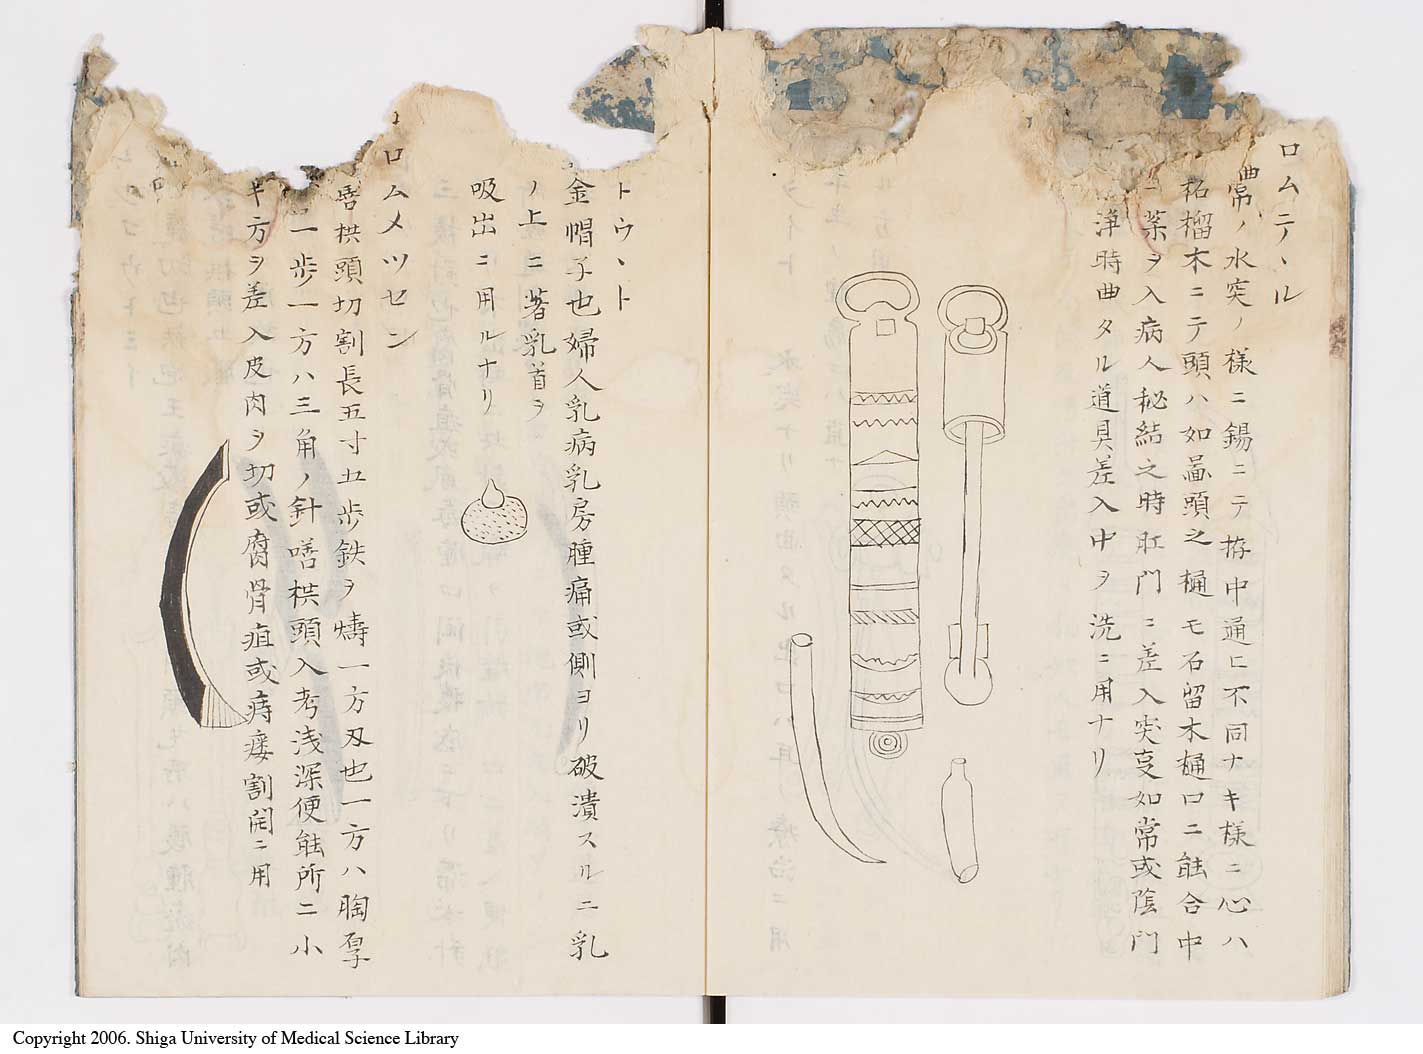 ロムテヽル
常ノ水突ノ様ニ錫ニテ拵中通ヒ不同ナキ様ニ心ハ
柘榴木ニテ頭ハ如鼻頭之樋モ石留木樋口ニ能合中
ニ薬ヲ入病人秘結之時肛門ニ差入突㕝如常或陰門
浄時曲タル道具差入中ヲ洗ニ用ナリ
トウヽト
金帽子也婦人乳病乳房腫痛或側ヨリ破潰スルニ乳
ノ上ニ著乳首ヲ
吸出ニ用ルナリ
ロムメツセン
栱頭切割長五寸五歩鉄ヲ一方刄也一方ハ
一歩一方ハ三角ノ針栱頭入考浅深便能所ニ小
キ方ヲ差入皮肉ヲ切或腐骨疽或痔瘻割開ニ用
Copyright 2006. Shiga University of Medical Science Library